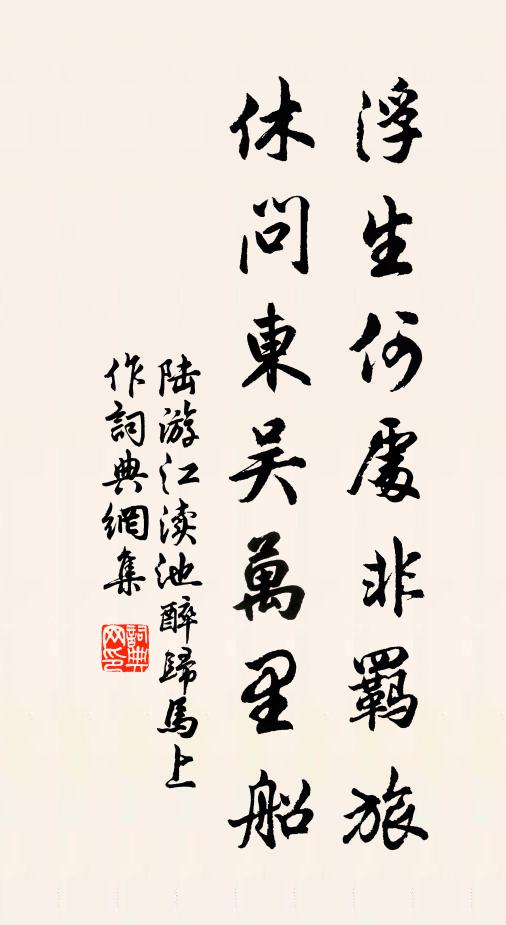 浮生何處非羇旅
休問東吴萬里船
陆游江渎池醉歸馬上
作詞典網集
詞典网印